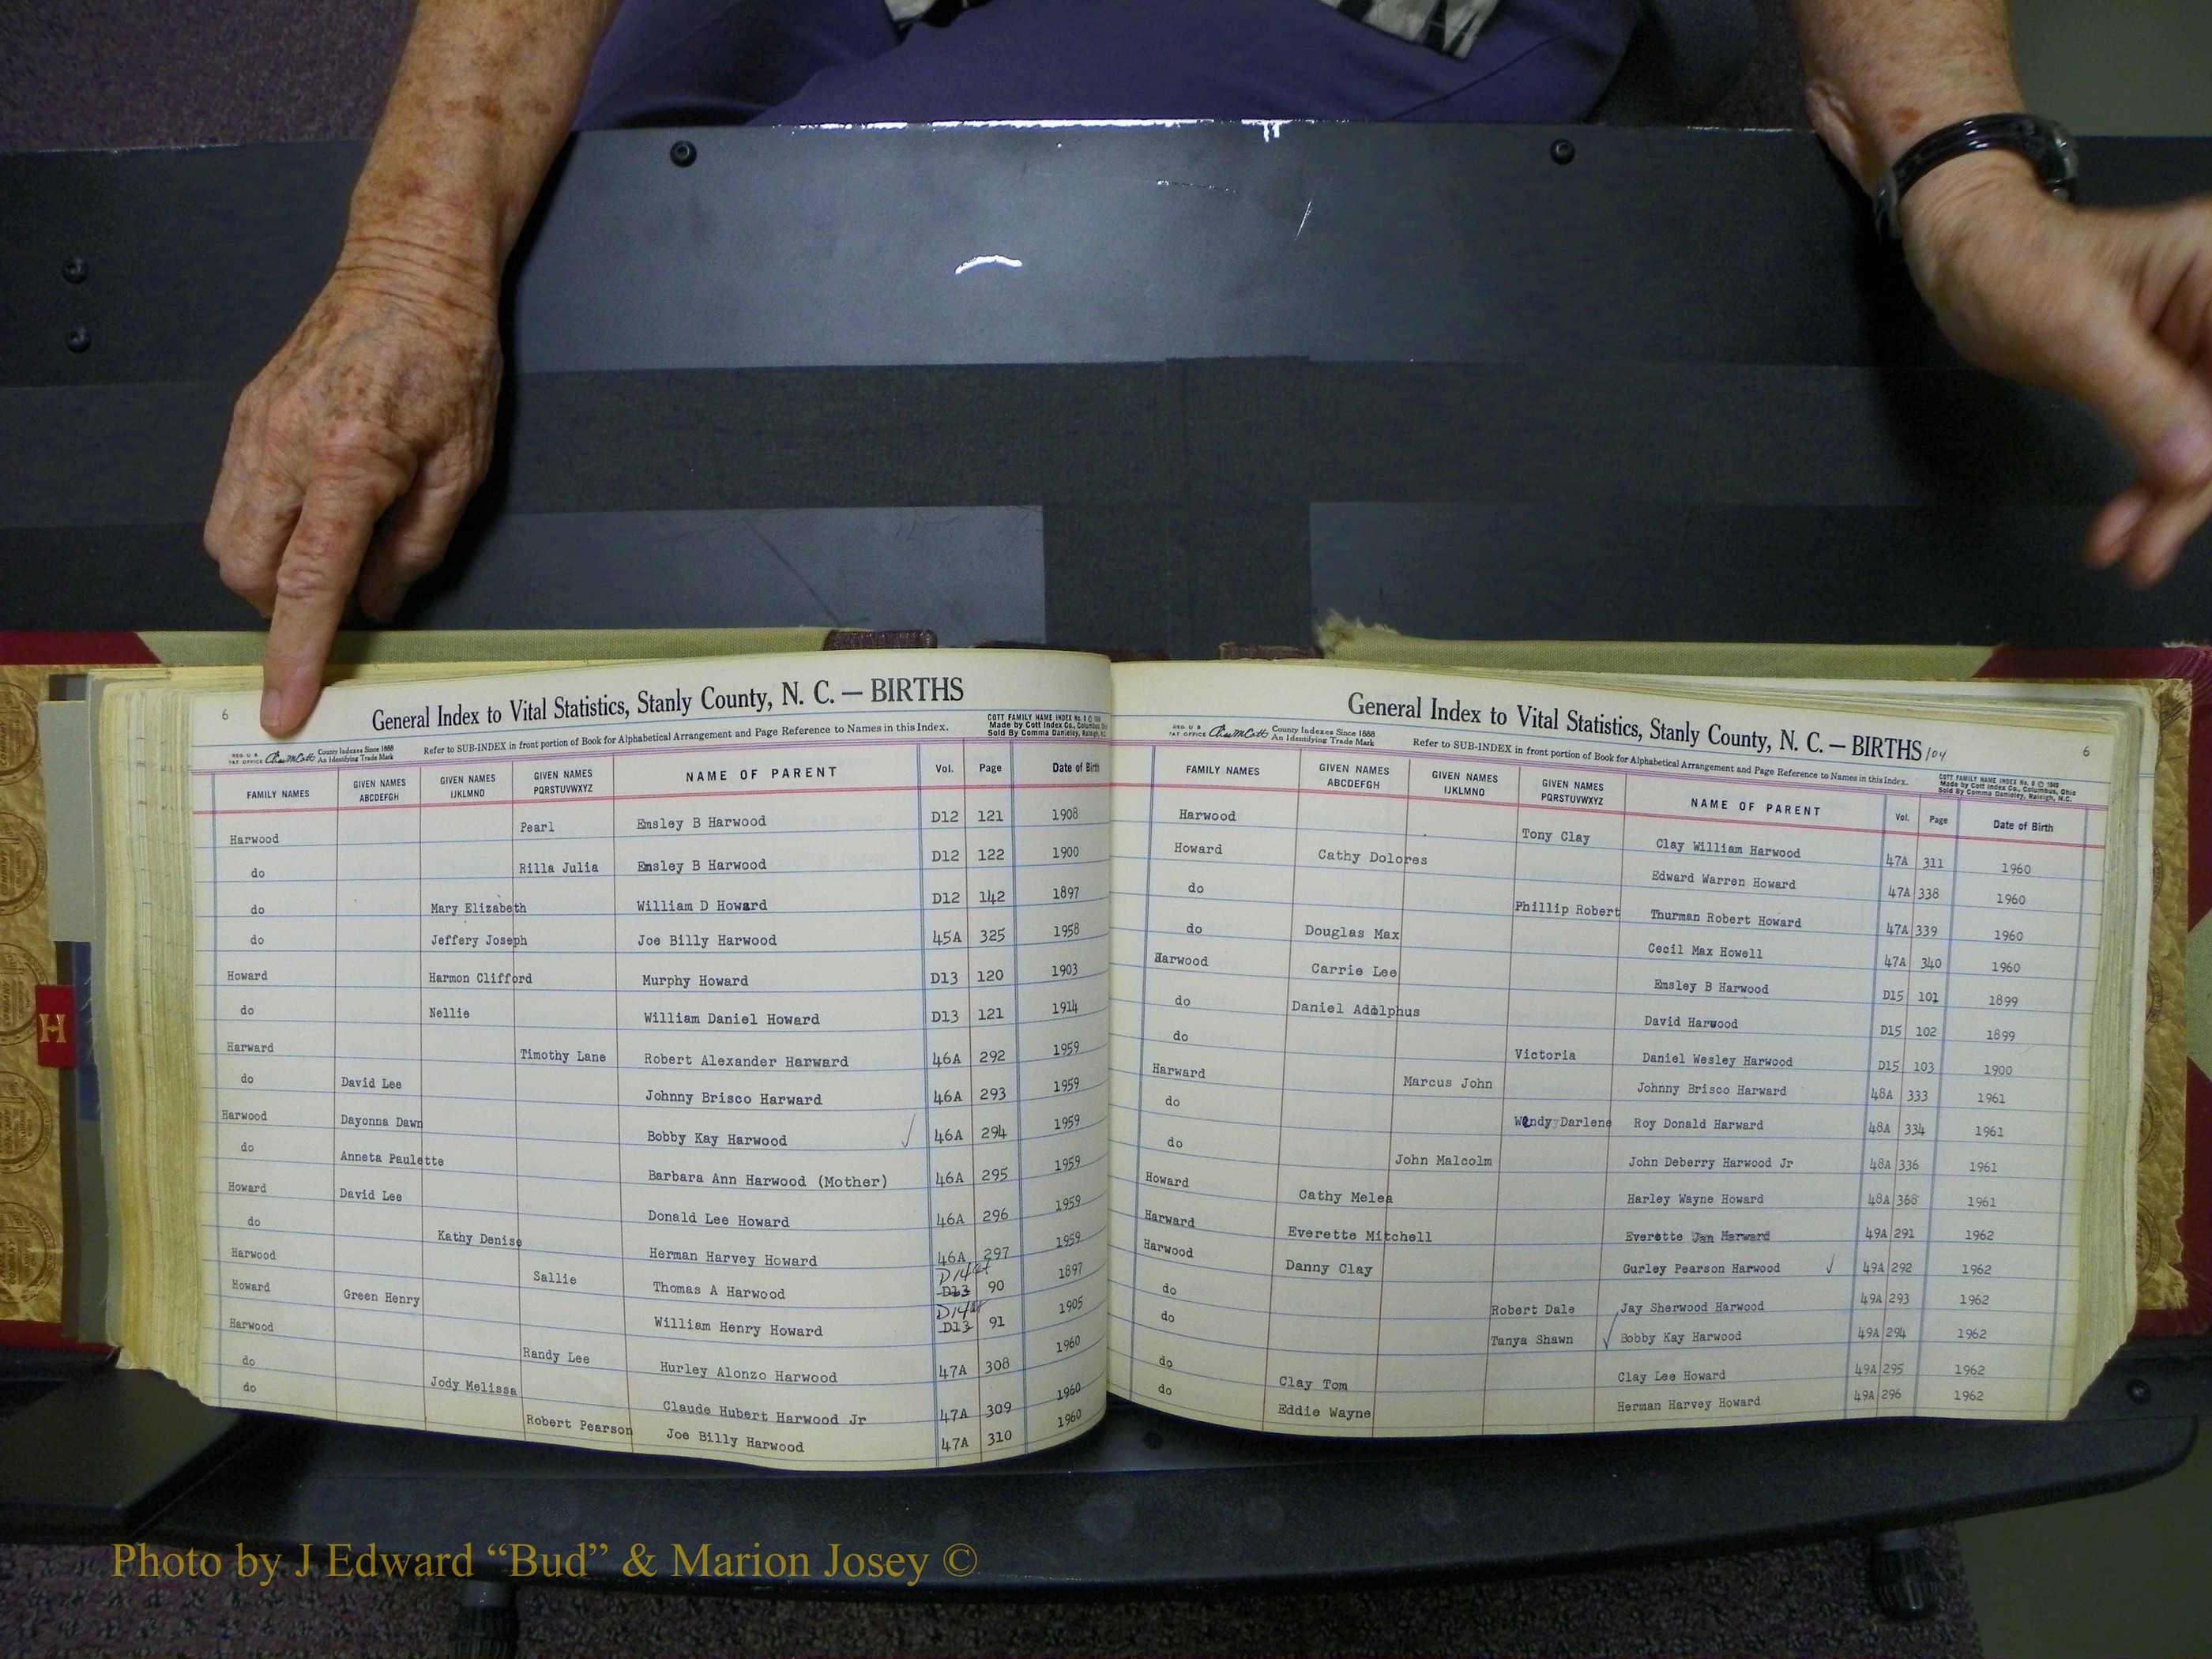 6
General Index to Vital Statistics, Stanly County, N. C. — BIRTHS
REG. U S PAT OFFICE County Indexes Since 1888 An Identifying Trade Mark
Refer to SUB-INDEX in front portion of Book for Alphabetical Arrangement and Page Reference to Names in this Index.
COTT FAMILY NAME INDEX No. 8 © 1949
Made by Cott Index Co., Columbus, Ohio
Sold By Comma Danieley, Raleigh, N.C.
FAMILY NAMES GIVEN NAMES ABCDEFGH GIVEN NAMES IJKLMNO GIVEN NAMES PQRSTUVWXYZ NAME OF PARENT Vol. Page Date of Birth
Harwood Pearl Emsley B Harwood D12 121 1908
do Rilla Julia Emsley B Harwood D12 122 1900
do Mary Elizabeth William D Howard D12 142 1897
do Jeffery Joseph Joe Billy Harwood 45A 325 1958
Howard Harmon Clifford Murphy Howard D13 120 1903
do Nellie William Daniel Howard D13 121 1914
Harward Timothy Lane Robert Alexander Harward 46A 292 1959
do David Lee Johnny Brisco Harward 46A 293 1959
Harwood Dayonna Dawn Bobby Kay Harwood ✓ 46A 294 1959
do Anneta Paulette Barbara Ann Harwood (Mother) 46A 295 1959
Howard David Lee Donald Lee Howard 46A 296 1959
do Kathy Denise Herman Harvey Howard 46A 297 1959
Harwood Sallie Thomas A Harwood D14 D13 90 1897
Howard Green Henry William Henry Howard D14 D13 91 1905
Harwood Randy Lee Hurley Alonzo Harwood 47A 308 1960
do Jody Melissa Claude Hubert Harwood Jr 47A 309 1960
do Robert Pearson Joe Billy Harwood 47A 310 1960
General Index to Vital Statistics, Stanly County, N. C. — BIRTHS /04
6
REG. U S PAT OFFICE County Indexes Since 1888 An Identifying Trade Mark
Refer to SUB-INDEX in front portion of Book for Alphabetical Arrangement and Page Reference to Names in this Index.
COTT FAMILY NAME INDEX No. 8 © 1949
Made by Cott Index Co., Columbus, Ohio
Sold By Comma Danieley, Raleigh, N.C.
FAMILY NAMES GIVEN NAMES ABCDEFGH GIVEN NAMES IJKLMNO GIVEN NAMES PQRSTUVWXYZ NAME OF PARENT Vol. Page Date of Birth
Harwood Tony Clay Clay William Harwood 47A 311 1960
Howard Cathy Dolores Edward Warren Howard 47A 338 1960
do Phillip Robert Thurman Robert Howard 47A 339 1960
do Douglas Max Cecil Max Howell 47A 340 1960
Harwood Carrie Lee Emsley B Harwood D15 101 1899
do Daniel Adolphus David Harwood D15 102 1899
do Victoria Daniel Wesley Harwood D15 103 1900
Harward Marcus John Johnny Brisco Harward 48A 333 1961
do Wendy Darlene Roy Donald Harward 48A 334 1961
do John Malcolm John Deberry Harwood Jr 48A 336 1961
Howard Cathy Melea Harley Wayne Howard 48A 368 1961
Harward Everette Mitchell Everette Jan Harward 49A 291 1962
Harwood Danny Clay Gurley Pearson Harwood ✓ 49A 292 1962
do Robert Dale Jay Sherwood Harwood 49A 293 1962
do Tanya Shawn ✓ Bobby Kay Harwood 49A 294 1962
do Clay Tom Clay Lee Howard 49A 295 1962
do Eddie Wayne Herman Harvey Howard 49A 296 1962
H
Photo by J Edward “Bud” & Marion Josey ©